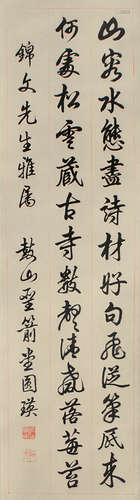 山容水態盡詩材好句飛從筆底来
何處松雲蔵古寺數聲清磬落莓苔
錦文先生雅屬　鼓山聖箭堂圓瑛